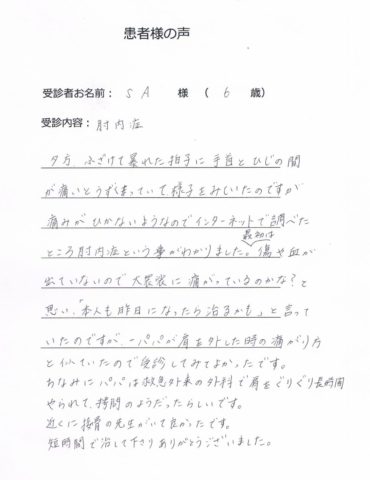 患者様の声
受診者お名前： S A 様 （ 6 歳）
受診内容： 肘内症
夕方 ふざけて暴れた拍子に手首とひじの間
が痛いとうずまっていて様子をみていたのですが
痛みがひかないようなのでインターネットで調べた
ところ肘内症という事がわかりました。最初は傷や血が
出ていないので大袈裟に痛がっているのかな？と
思い、「本人も昨日になったら治るかも」と言って
いたのですが、パパが肩を外した時の痛がり方
と似ていたので受診してみてよかったです。
ちなみにパパは救急外来の外科で肩をぐりぐり長時間
やられて、拷問のようだったらしいです。
近くに接骨の先生がいて良かったです。
短時間で治して下さりありがとうございました。